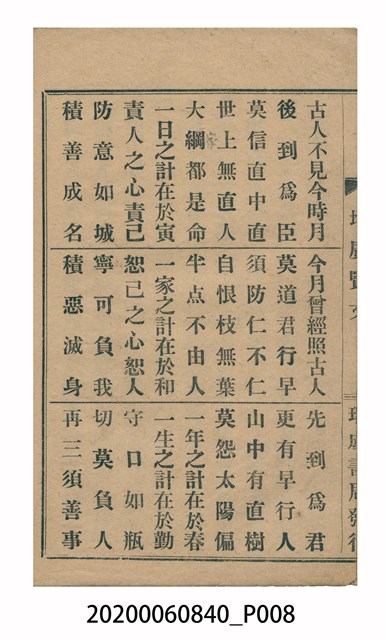 古人不見今時月 今月曾經照古人 先到爲君
後到爲臣 莫道君行早 更有早行人
莫信直中直 須防仁不仁 山中有直樹
世上無直人 自恨枝無葉 莫怨太陽偏
大綱都是命 半点不由人 一年之計在於春
一日之計在於寅 一家之計在於和 一生之計在於勤
責人之心責己 恕己之心恕人 守口如瓶
防意如城 寧可負我 切莫負人
積善成名 積惡滅身 再三須善事
20200060840_P008